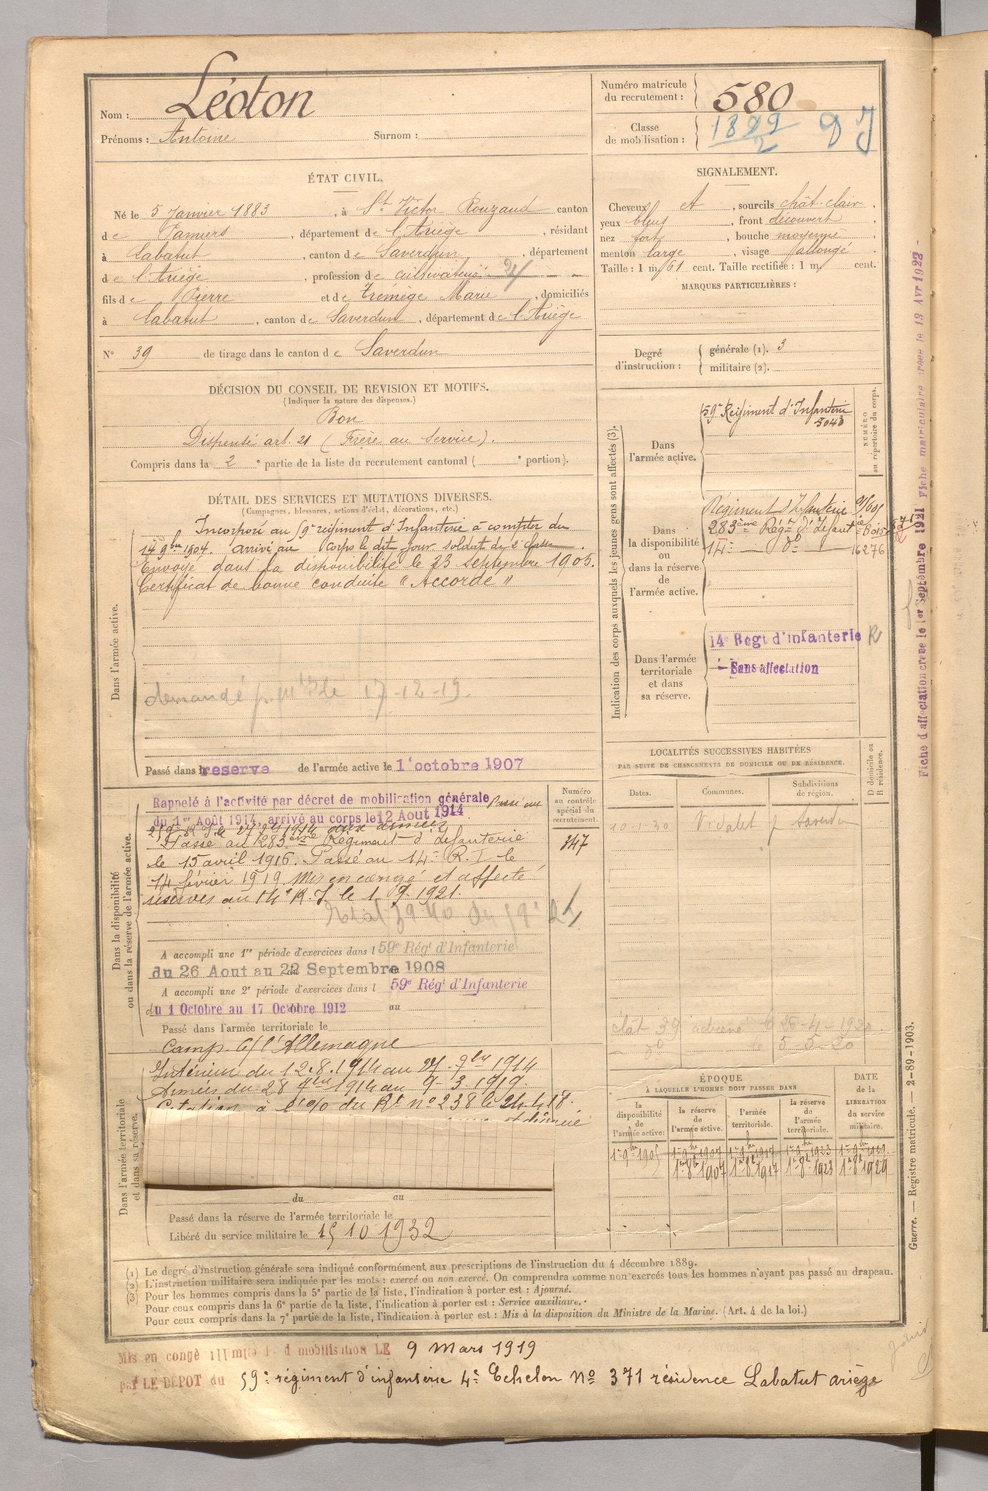 Nom : Léoton
Prénoms : Antoine Surnom :
Numéro matricule du recrutement : 580
Classe de mobilisation : 1899/2
ÉTAT CIVIL.
Né le 5 Janvier 1883, à St Victor Rouzaud canton
de Pamiers, département de l'Ariège, résidant
à Labatut, canton de Saverdun, département
de l'Ariège, profession de cultivateur
fils de Pierre et de Trémège Marie, domiciliés
à Labatut, canton de Saverdun, département de l'Ariège
N° 39 de tirage dans le canton de Saverdun
SIGNALEMENT.
Cheveux et, sourcils chât-clair,
yeux bleus, front découvert,
nez fort, bouche moyenne,
menton large, visage allongé.
Taille : 1 m 61 cent. Taille rectifiée : 1 m cent.
MARQUES PARTICULIÈRES :
Degré d'instruction : générale (1). 3
militaire (2).
DÉCISION DU CONSEIL DE REVISION ET MOTIFS.
(Indiquer la nature des dispenses.)
Bon
Dispensé art. 21 (Frère au Service).
Compris dans la 2e partie de la liste du recrutement cantonal ( e portion).
DÉTAIL DES SERVICES ET MUTATIONS DIVERSES.
(Campagnes, blessures, actions d'éclat, décorations, etc.)
Dans l'armée active.
Incorporé au 59e régiment d'Infanterie à compter du
14 9bre 1904. Arrivé au Corps le dit jour. soldat de 2e classe.
Envoyé dans la disponibilité le 23 septembre 1905.
Certificat de bonne conduite "Accordé"
demandé 17-12-19.
Passé dans la reserve de l'armée active le 1er octobre 1907
Indication des corps auxquels les jeunes gens sont affectés (3).
NUMÉRO au répertoire du corps.
Dans l'armée active.
59e Régiment d'Infanterie
5048
Dans la disponibilité ou dans la réserve de l'armée active.
Régiment d'Infanterie
283ème Régt d'Infant
14e do
16276
Dans l'armée territoriale et dans sa réserve.
14e Regt d'infanterie R
Sans affectation
Fiche d'affectation créée le 1er Septembre 1921 Fiche matriculaire créée le 13 Avr 1922
LOCALITÉS SUCCESSIVES HABITÉES
PAR SUITE DE CHANGEMENTS DE DOMICILE OU DE RÉSIDENCE.
Dates. Communes. Subdivisions de région. D domicile ou R résidence.
10-1-30
Dans la disponibilité ou dans la réserve de l'armée active.
Numéro au contrôle spécial du recrutement.
347
Rappelé à l'activité par décret de mobilisation générale Passé au
du 1er Août 1914, arrivé au corps le 12 Aout 1914
aux armées
Passé au 283ème Régiment d'Infanterie
le 15 avril 1916. Passé au 14e R.I. le
14 février 1919 Mis en congé et affecté
réserves au 14e R.I. le 1.9.1921.
A accompli une 1re période d'exercices dans l 59e Rég' d'Infanterie
du 26 Aout au 22 Septembre 1908
A accompli une 2e période d'exercices dans l 59e Rég' d'Infanterie
du 1 Octobre au 17 Octobre 1912 au
Passé dans l'armée territoriale le
Dans l'armée territoriale et dans sa réserve.
Camp. c/ l'Allemagne
Intérieur du 12.8.1914 au 27-9bre 1914
Armées du 28 9bre 1914 au 9-3-1919.
Citation à l'o/o du Rt n° 238 le 24.4.18.
du au
Passé dans la réserve de l'armée territoriale le
Libéré du service militaire le 15 10 1932
ÉPOQUE
À LAQUELLE L'HOMME DOIT PASSER DANS
la disponibilité de l'armée active. la réserve de l'armée active. l'armée territoriale. la réserve de l'armée territoriale. DATE de la LIBÉRATION du service militaire.
1er 8bre 1907 1er 8bre 1917 1er 8bre 1923 1er 8bre 1929
(1) Le degré d'instruction générale sera indiqué conformément aux prescriptions de l'instruction du 4 décembre 1889.
(2) L'instruction militaire sera indiquée par les mots : exercé ou non exercé. On comprendra comme non exercés tous les hommes n'ayant pas passé au drapeau.
(3) Pour les hommes compris dans la 5e partie de la liste, l'indication à porter est : Ajourné.
Pour ceux compris dans la 6e partie de la liste, l'indication à porter est : Service auxiliaire.
Pour ceux compris dans la 7e partie de la liste, l'indication à porter est : Mis à la disposition du Ministre de la Marine. (Art. 4 de la loi.)
Guerre. — Registre matricule. — 2-89-1903.
Mis en congé illimité de démobilisation LE 9 mars 1919
par LE DÉPOT du 59e régiment d'infanterie 4e Echelon N° 371 résidence Labatut ariège